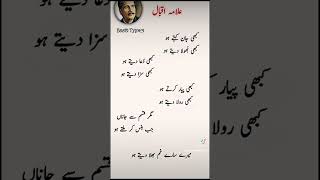 علامہ اقبال
Basit Types
کبھی جان کہتے ہو
کبھی بھولا دیتے ہو
کبھی دعا دیتے ہو
کبھی سزا دیتے ہو
کبھی پیار کرتے ہو
کبھی رولا دیتے ہو
مگر قسم سے جاناں
جب ہنس کر ملتے ہو
میرے سارے غم بھلا دیتے ہو